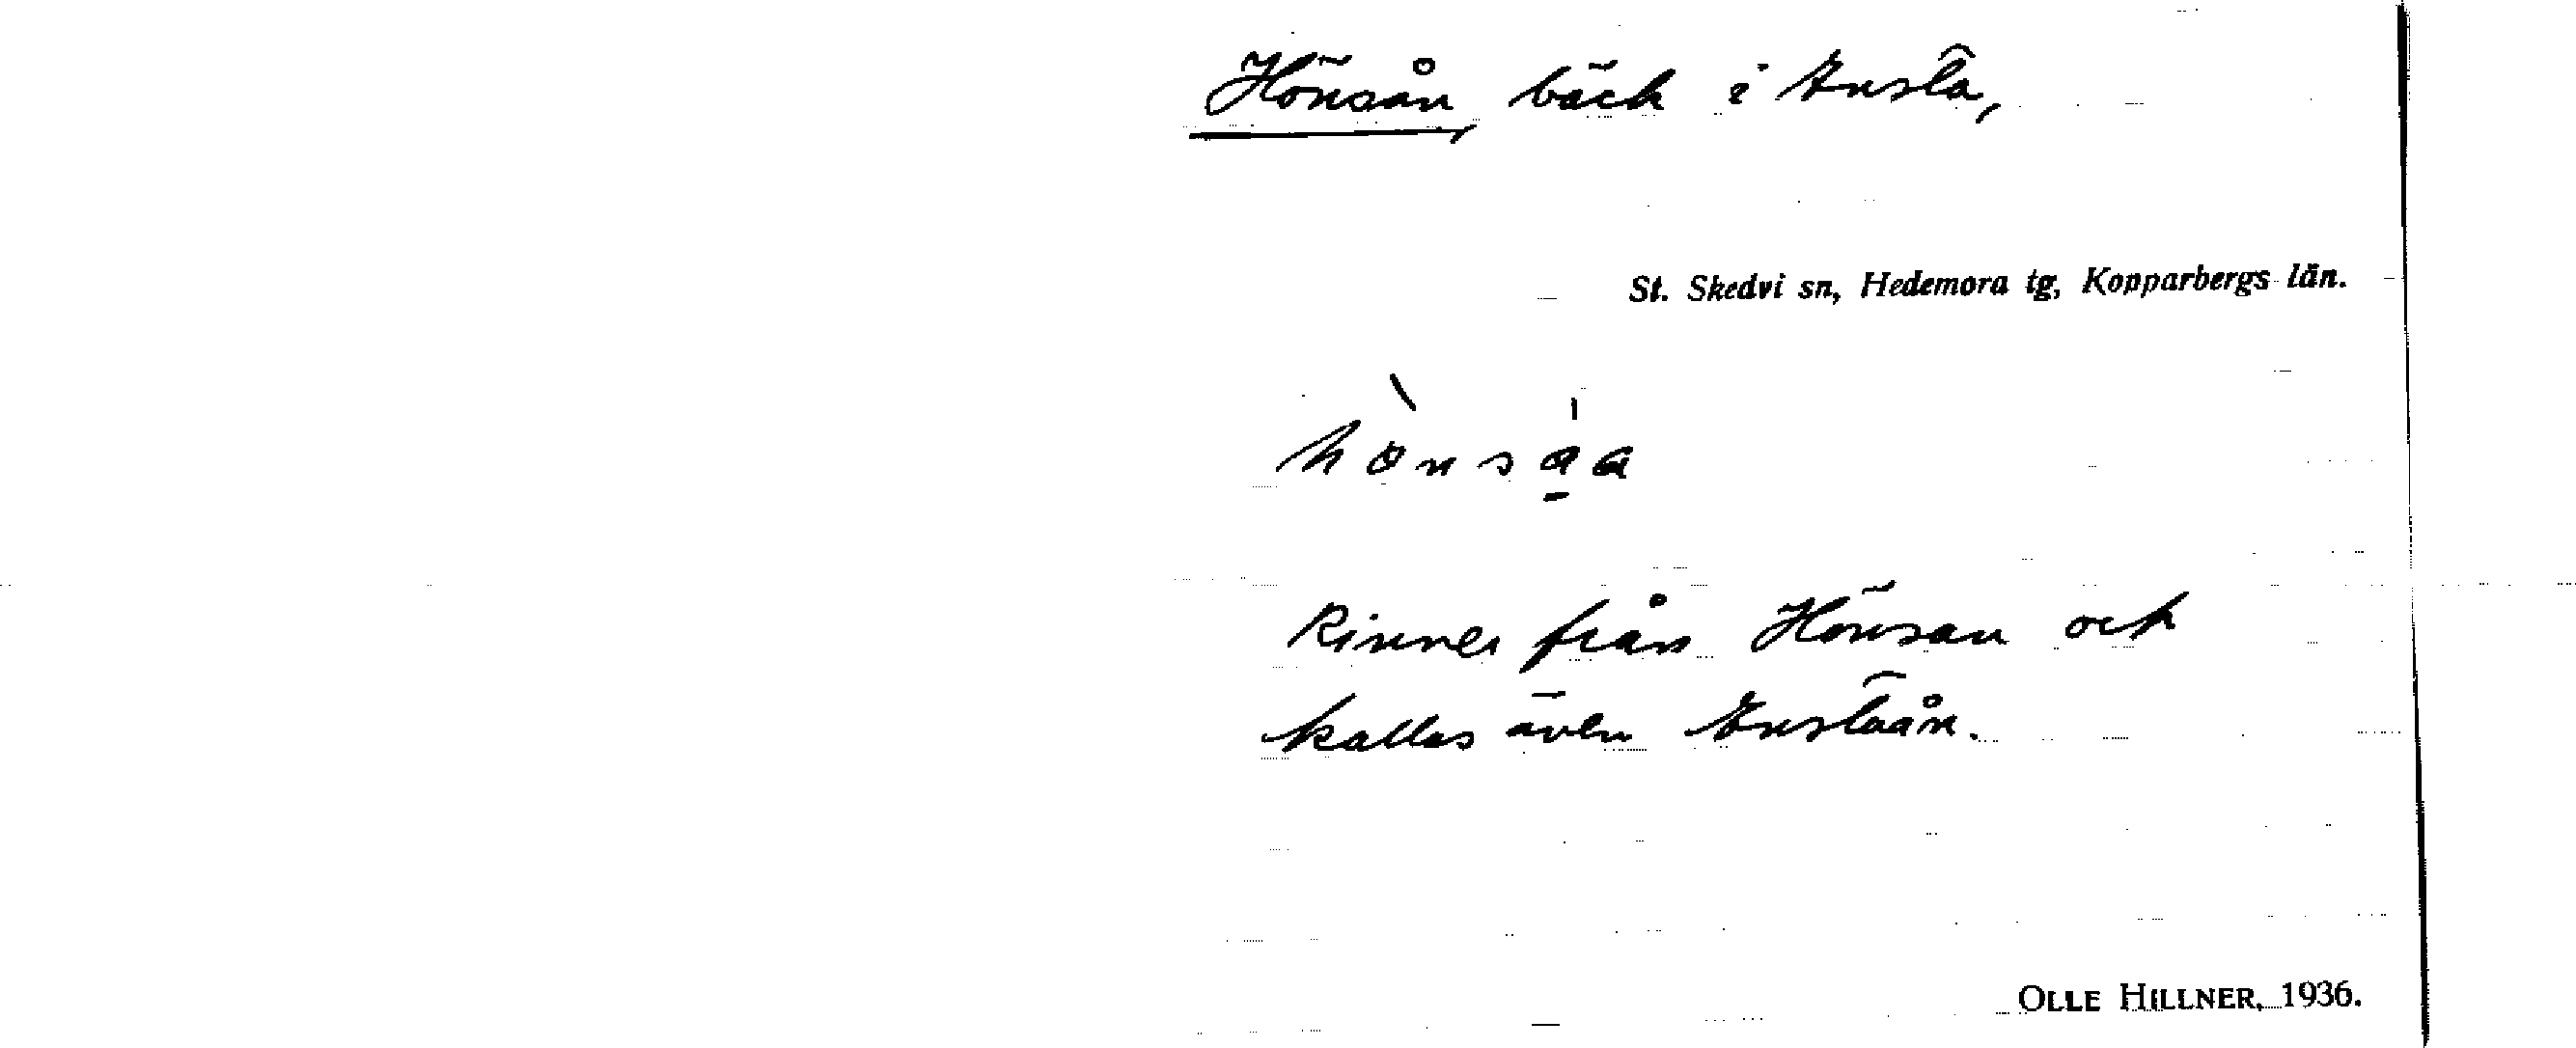 Hönsån, bäck i Ansta,
St. Skedvi sn, Hedemora tg, Kopparbergs län.
Rinner från Hönsan och
kallas även Anstaån.
OLLE HILLNER, 1936.